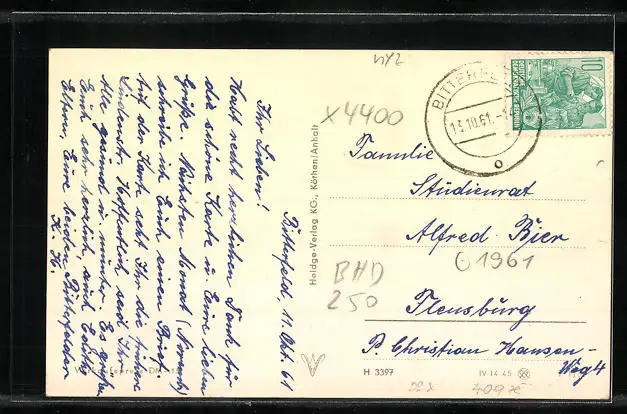 Bitterfeld, 11. Okt. 61
Ihr Lieben!
Habt recht herzlichen Dank für
die schöne Karte u. Eure lieben
Grüße. Nächsten Monat (Novemb.)
schreibe ich Euch einen Brief.
Auf der Karte seht Ihr die
Lindenstr. Hoffentlich seid Ihr
Alle gesund u. munter. Es grüßt
Euch sehr herzlich, auch
Eltern, Eure beiden Bitterfelder
K. H.
Heldge-Verlag KG., Köthen/Anhalt
X4400
BITTERFELD
13.10.61.
10
DEUTSCHE
DEMOKRATISCHE REPUBLIK
Familie
Studienrat
Alfred Bier
1961
BHD
250
Flensburg
P. Christian Hansen-
Weg 4
H 3397
IV-14-45